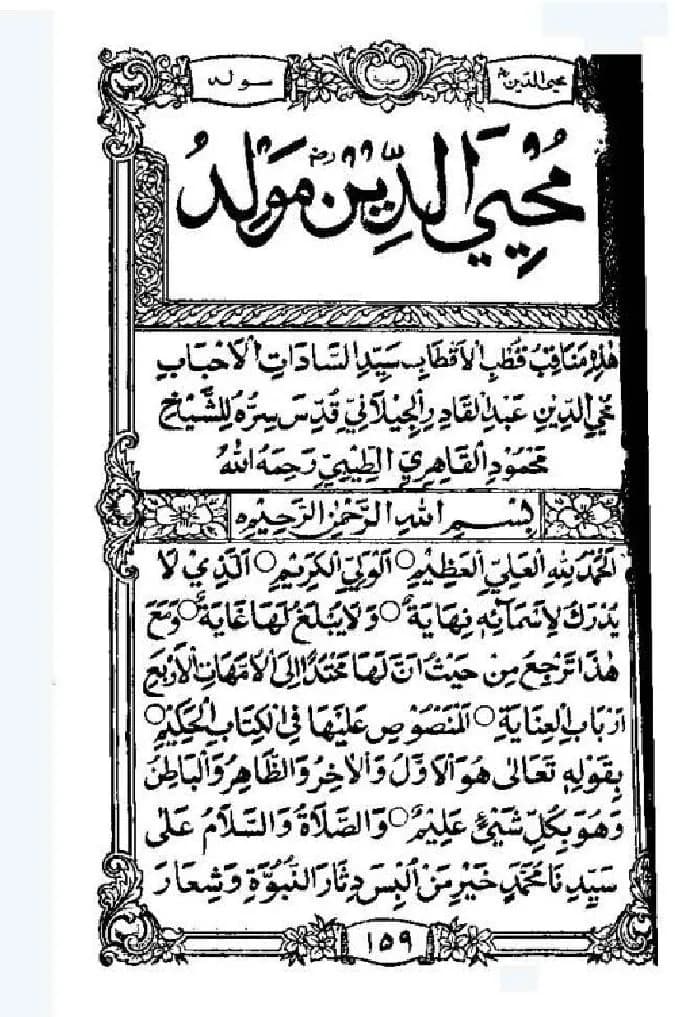 محيى الدين رض
مولد
مُحْيِي الدِّيْن رض مَوْلِدُ
هٰذِهِ مَنَاقِبُ قُطْبِ الْاَقْطَابِ سَيِّدِ السَّادَاتِ الْاَحْبَابِ
مُحْيِ الدِّيْنِ عَبْدِ الْقَادِرِ الْجِيْلَانِيْ قُدِّسَ سِرُّهُ لِلشَّيْخِ
مَحْمُوْدِ الْقَاهِرِيِّ الطِّيْبِيِّ رَحِمَهُ اللهُ
بِسْمِ اللهِ الرَّحْمٰنِ الرَّحِيْمِ ه
اَلْحَمْدُ لِلّٰهِ الْعَلِيِّ الْعَظِيْمِ ○ اَلْوَلِيِّ الْكَرِيْمِ ○ اَلَّذِيْ لَا
يُدْرَكُ لِاَسْمَائِهِ نِهَايَةٌ ○ وَلَا يُبْلَغُ لَهَا غَايَةٌ ○ وَمَعَ
هٰذَا تَرْجِعُ مِنْ حَيْثُ اَنَّ لَهَا مَحْتِدًا اِلَى الْاُمَّهَاتِ الْاَرْبَعِ
اَرْبَابِ الْعِنَايَةِ ○ اَلْمَنْصُوْصِ عَلَيْهَا فِي الْكِتَابِ الْحَكِيْمِ ○
بِقَوْلِهِ تَعَالٰى هُوَ الْاَوَّلُ وَالْاٰخِرُ وَالظَّاهِرُ وَالْبَاطِنُ
وَهُوَ بِكُلِّ شَيْئٍ عَلِيْمٌ ○ وَالصَّلَاةُ وَالسَّلَامُ عَلٰى
سَيِّدِنَا مُحَمَّدٍ خَيْرِ مَنْ اُلْبِسَ دِثَارَ النُّبُوَّةِ وَشِعَارَ
١٥٩